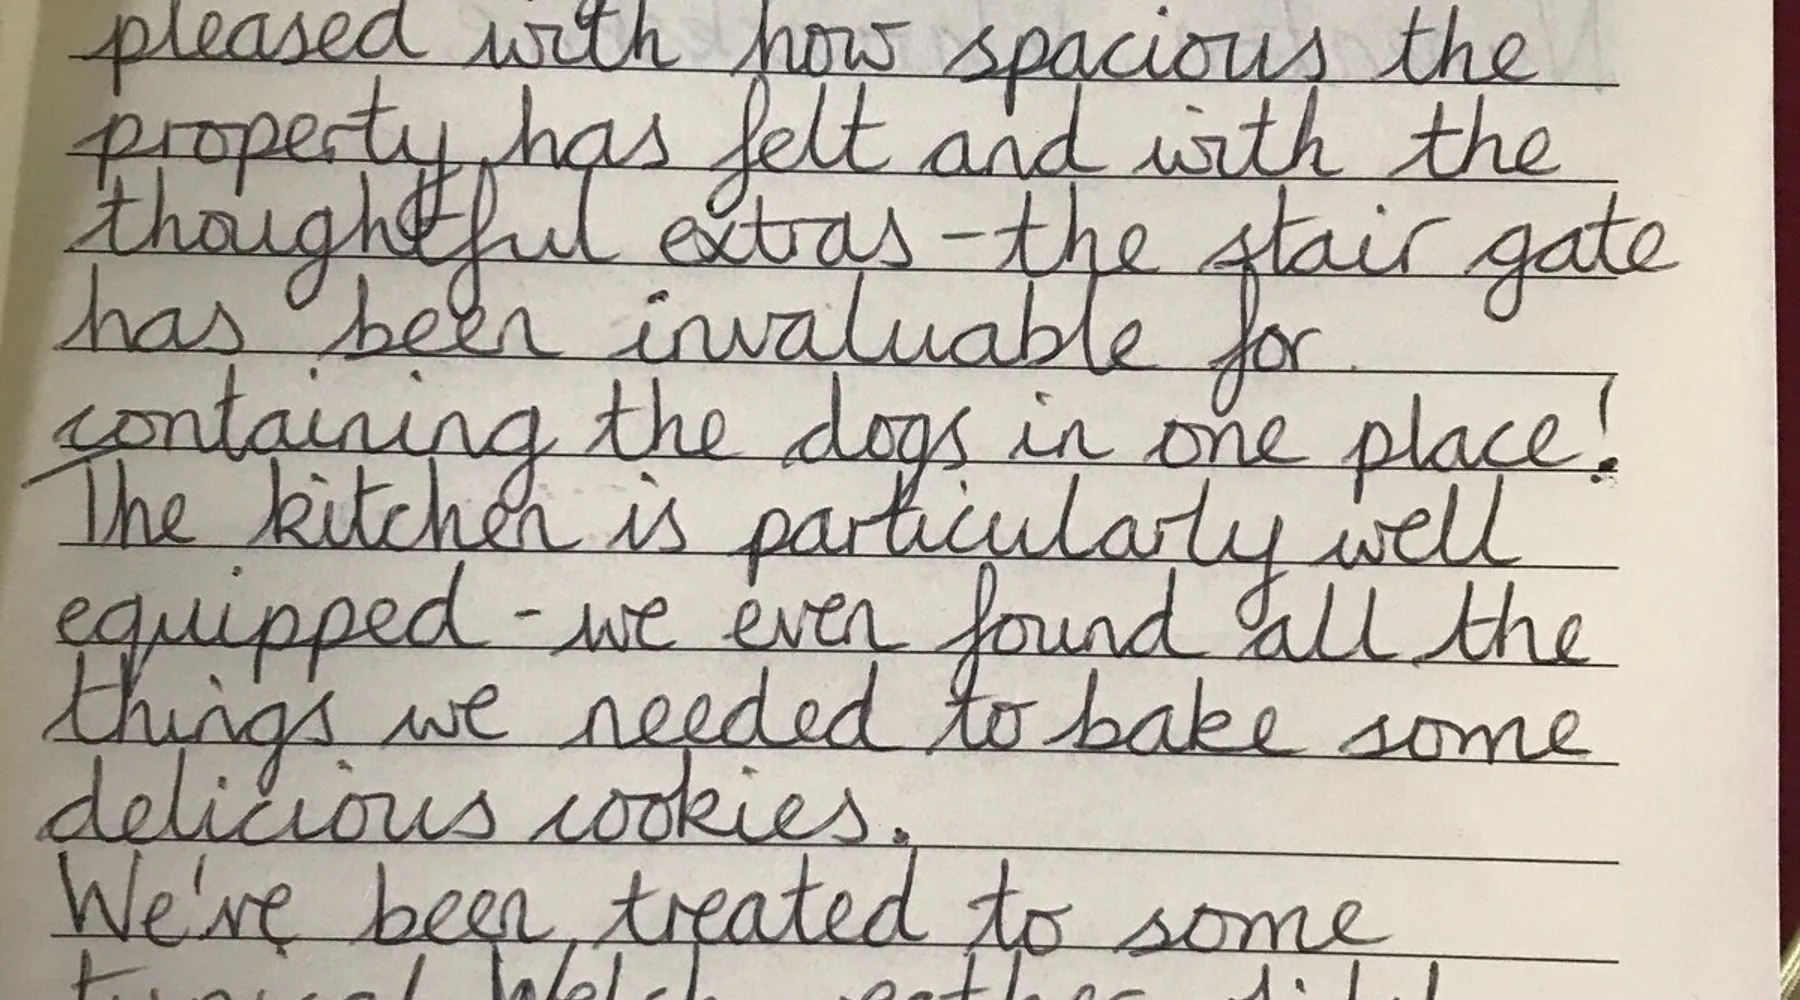 pleased with how spacious the
property has felt and with the
thoughtful extras - the stair gate
has been invaluable for
containing the dogs in one place!
The kitchen is particularly well
equipped - we even found all the
things we needed to bake some
delicious cookies.
We've been treated to some
typical Welsh